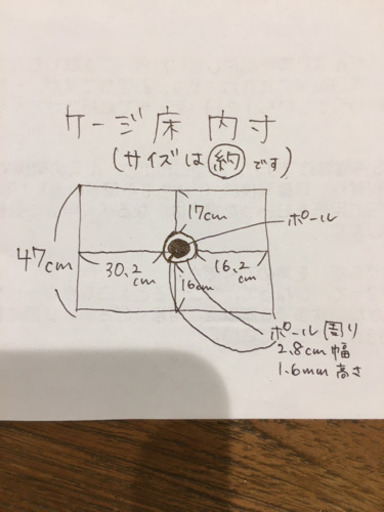 ケージ床 内寸
(サイズは約です)
17cm
ポール
47cm
30.2
cm
16.2
cm
16cm
ポール周り
2.8cm 幅
1.6mm 高さ